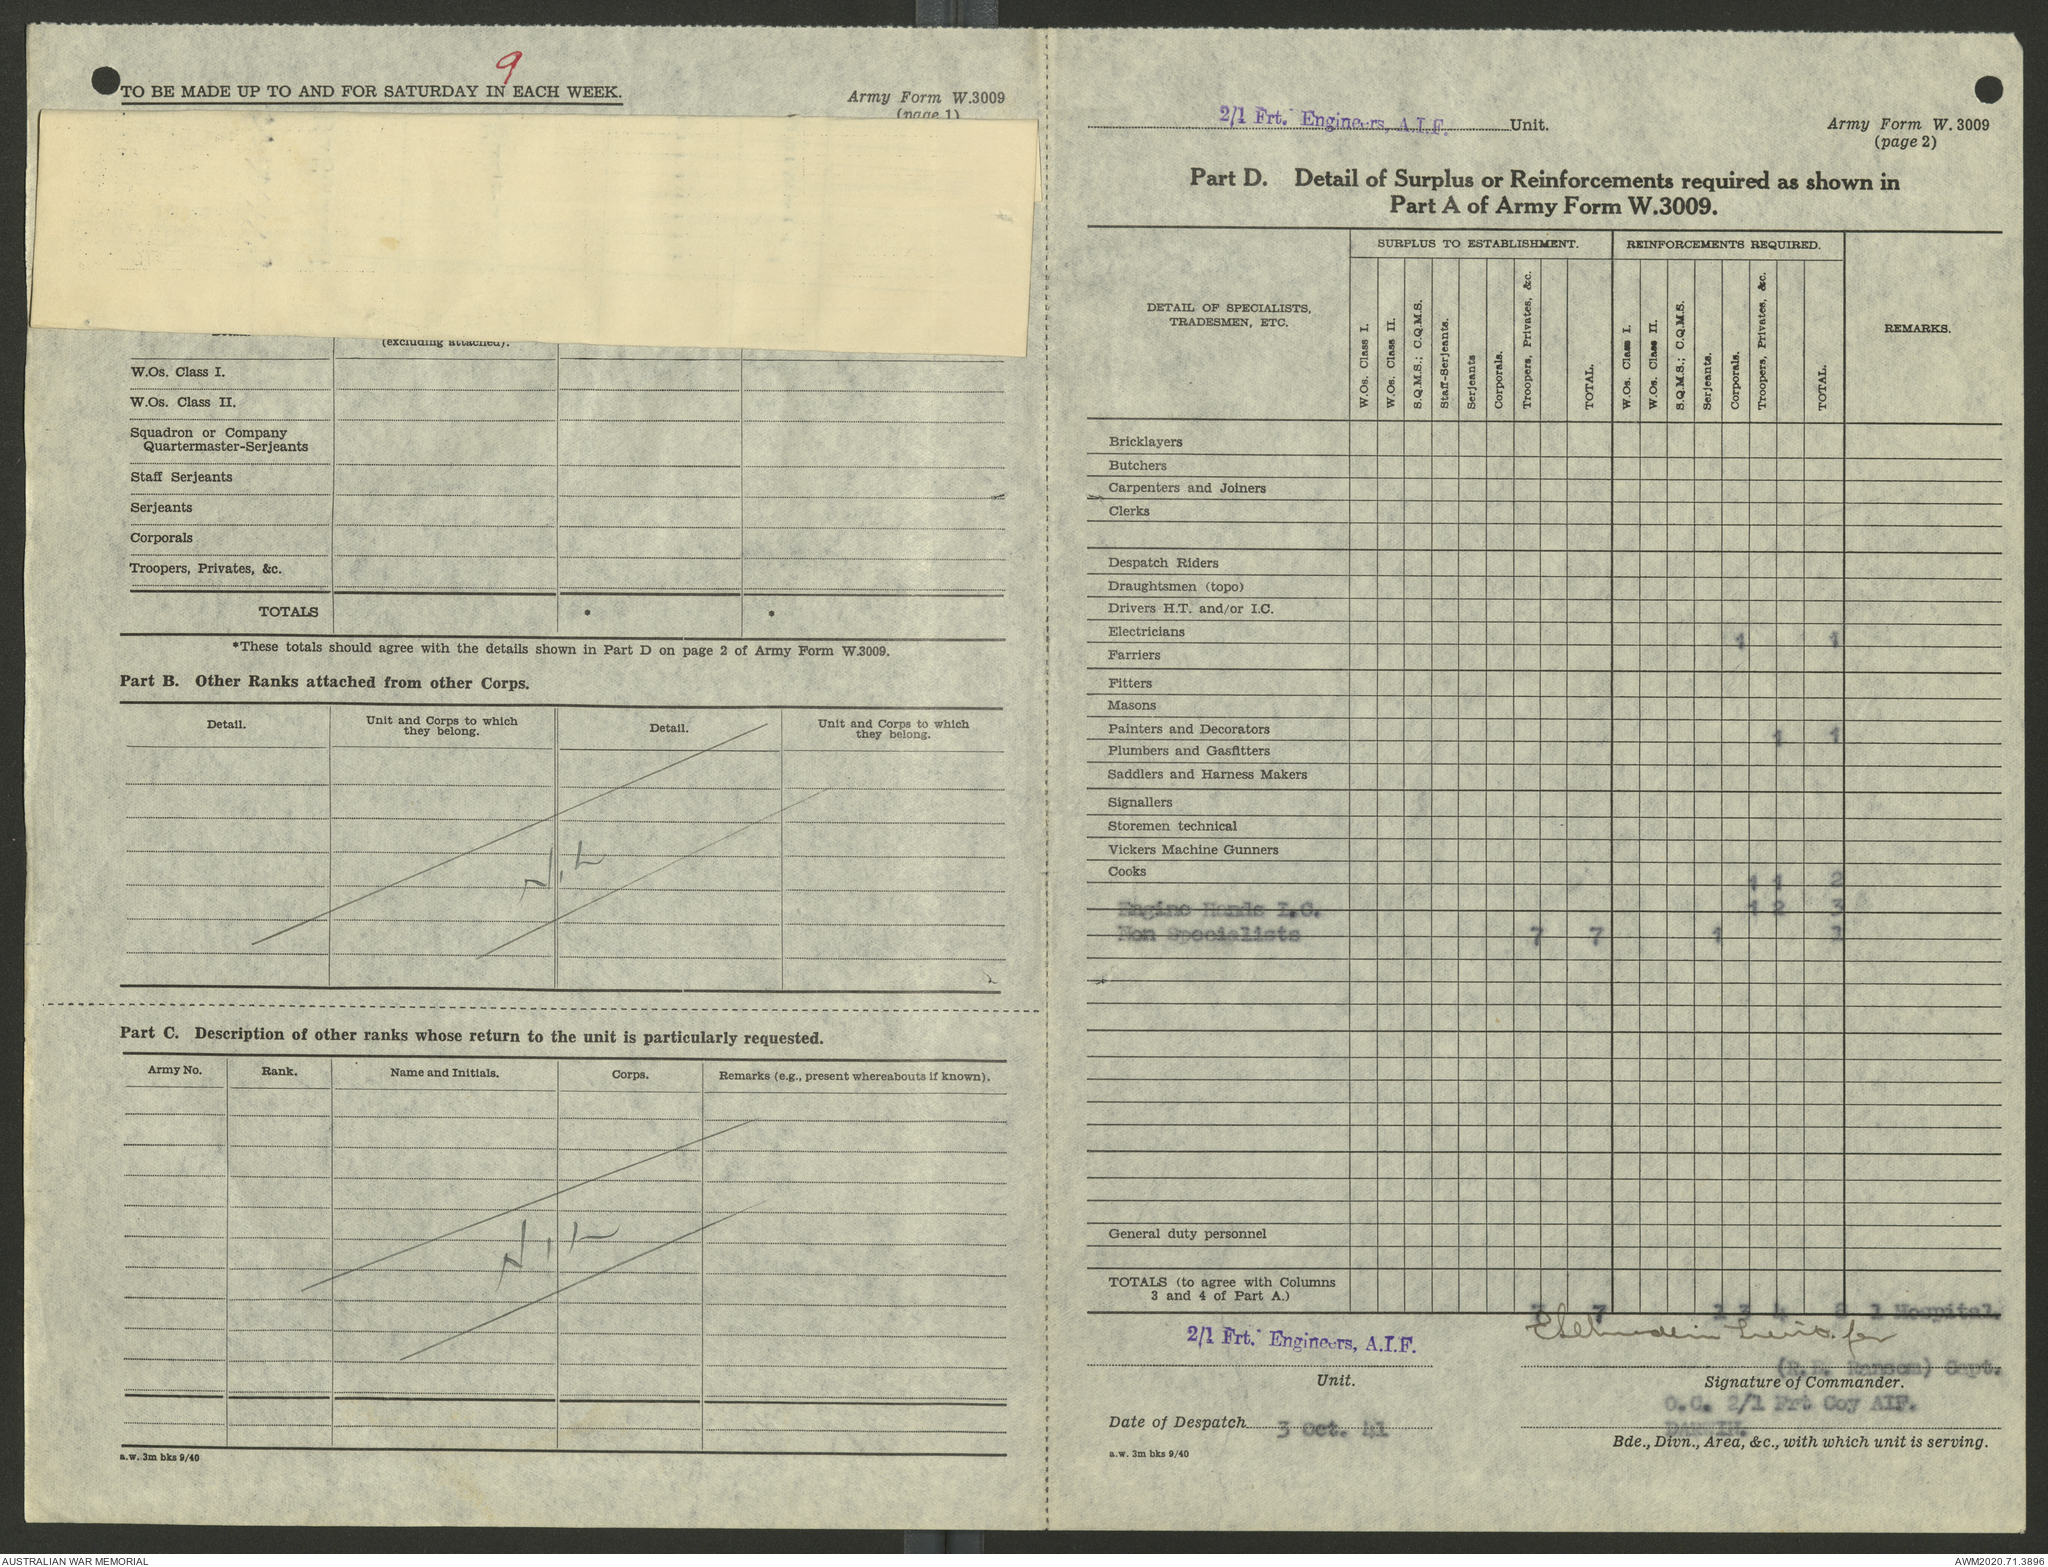 9
TO BE MADE UP TO AND FOR SATURDAY IN EACH WEEK.
Army Form W.3009
(page 1)
(excluding attached).
W.Os. Class I.
W.Os. Class II.
Squadron or Company
Quartermaster-Serjeants
Staff Serjeants
Serjeants
Corporals
Troopers, Privates, &c.
TOTALS * *
*These totals should agree with the details shown in Part D on page 2 of Army Form W.3009.
Part B. Other Ranks attached from other Corps.
Detail. Unit and Corps to which they belong. Detail. Unit and Corps to which they belong.
Nil
Part C. Description of other ranks whose return to the unit is particularly requested.
Army No. Rank. Name and Initials. Corps. Remarks (e.g., present whereabouts if known).
Nil
a.w. 3m bks 9/40
2/1 Frt. Engineers, A.I.F. Unit.
Army Form W.3009
(page 2)
Part D. Detail of Surplus or Reinforcements required as shown in
Part A of Army Form W.3009.
DETAIL OF SPECIALISTS,
TRADESMEN, ETC.
SURPLUS TO ESTABLISHMENT.
W.Os. Class I.
W.Os. Class II.
S.Q.M.S.; C.Q.M.S.
Staff-Serjeants.
Serjeants
Corporals.
Troopers, Privates, &c.
TOTAL.
REINFORCEMENTS REQUIRED.
W.Os. Class I.
W.Os. Class II.
S.Q.M.S.; C.Q.M.S.
Serjeants.
Corporals.
Troopers, Privates, &c.
TOTAL.
REMARKS.
Bricklayers
Butchers
Carpenters and Joiners
Clerks
Despatch Riders
Draughtsmen (topo)
Drivers H.T. and/or I.C.
Electricians 1 1
Farriers
Fitters
Masons
Painters and Decorators 1 1
Plumbers and Gasfitters
Saddlers and Harness Makers
Signallers
Storemen technical
Vickers Machine Gunners
Cooks 1 1 2
Engine Hands I.C. 1 2 3
Non Specialists 7 7 1 1
General duty personnel
TOTALS (to agree with Columns
3 and 4 of Part A.)
7 7 1 3 4 8 1 Hospital.
2/1 Frt. Engineers, A.I.F.
Unit.
Lieut. for
Capt.
Signature of Commander.
O.C. 2/1 Frt Coy AIF.
DARWIN.
Date of Despatch 3 Oct. 41
Bde., Divn., Area, &c., with which unit is serving.
a.w. 3m bks 9/40
AUSTRALIAN WAR MEMORIAL
AWM2020.71.3896